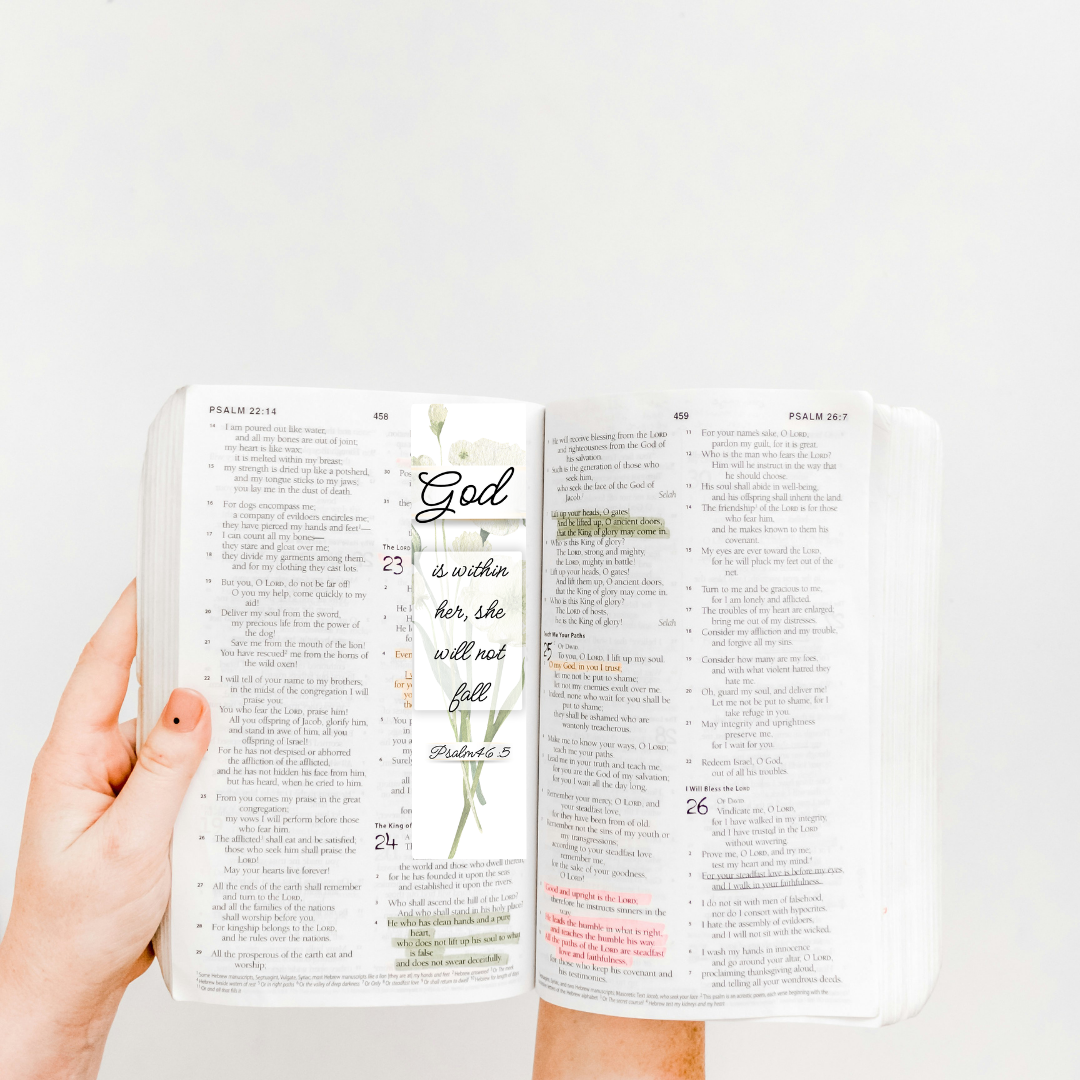 PSALM 22:14
458
14 I am poured out like water,
and all my bones are out of joint;
my heart is like wax;
it is melted within my breast;
15 my strength is dried up like a potsherd,
and my tongue sticks to my jaws;
you lay me in the dust of death.
16 For dogs encompass me;
a company of evildoers encircles me;
they have pierced my hands and feet—
17 I can count all my bones—
they stare and gloat over me;
18 they divide my garments among them,
and for my clothing they cast lots.
19 But you, O LORD, do not be far off!
O you my help, come quickly to my
aid!
20 Deliver my soul from the sword,
my precious life from the power of
the dog!
21 Save me from the mouth of the lion!
You have rescued me from the horns of
the wild oxen!
22 I will tell of your name to my brothers;
in the midst of the congregation I will
praise you:
You who fear the LORD, praise him!
All you offspring of Jacob, glorify him,
and stand in awe of him, all you
offspring of Israel!
For he has not despised or abhorred
the affliction of the afflicted,
and he has not hidden his face from him,
but has heard, when he cried to him.
25 From you comes my praise in the great
congregation;
my vows I will perform before those
who fear him.
26 The afflicted shall eat and be satisfied;
those who seek him shall praise the
LORD!
May your hearts live forever!
27 All the ends of the earth shall remember
and turn to the LORD,
and all the families of the nations
shall worship before you.
28 For kingship belongs to the LORD,
and he rules over the nations.
29 All the prosperous of the earth eat and
worship;
30
31
The Lord
23
2
3
He l
He l
4 Even
for y
5 You p
6 Surely
The King of
24
the world and those who dwell therein,
2 for he has founded it upon the seas
and established it upon the rivers.
3 Who shall ascend the hill of the LORD?
And who shall stand in his holy place?
4 He who has clean hands and a pure
heart,
who does not lift up his soul to what
is false
and does not swear deceitfully.
God
is within
her, she
will not
fall
Psalm46:5
459
PSALM 26:7
He will receive blessing from the LORD
and righteousness from the God of
his salvation.
Such is the generation of those who
seek him,
who seek the face of the God of
Jacob. Selah
Lift up your heads, O gates!
And be lifted up, O ancient doors,
that the King of glory may come in.
Who is this King of glory?
The LORD, strong and mighty,
the LORD, mighty in battle!
Lift up your heads, O gates!
And lift them up, O ancient doors,
that the King of glory may come in.
Who is this King of glory?
The LORD of hosts,
he is the King of glory! Selah
Teach Me Your Paths
25 OF DAVID.
To you, O LORD, I lift up my soul.
O my God, in you I trust;
let me not be put to shame;
let not my enemies exult over me.
Indeed, none who wait for you shall be
put to shame;
they shall be ashamed who are
wantonly treacherous.
Make me to know your ways, O LORD;
teach me your paths.
Lead me in your truth and teach me,
for you are the God of my salvation;
for you I wait all the day long.
Remember your mercy, O LORD, and
your steadfast love,
for they have been from of old.
Remember not the sins of my youth or
my transgressions;
according to your steadfast love
remember me,
for the sake of your goodness,
O LORD!
Good and upright is the LORD;
therefore he instructs sinners in the
way.
He leads the humble in what is right,
and teaches the humble his way.
All the paths of the LORD are steadfast
love and faithfulness,
for those who keep his covenant and
his testimonies.
11 For your name's sake, O LORD,
pardon my guilt, for it is great.
12 Who is the man who fears the LORD?
Him will he instruct in the way that
he should choose.
13 His soul shall abide in well-being,
and his offspring shall inherit the land.
14 The friendship of the LORD is for those
who fear him,
and he makes known to them his
covenant.
15 My eyes are ever toward the LORD,
for he will pluck my feet out of the
net.
16 Turn to me and be gracious to me,
for I am lonely and afflicted.
17 The troubles of my heart are enlarged;
bring me out of my distresses.
18 Consider my affliction and my trouble,
and forgive all my sins.
19 Consider how many are my foes,
and with what violent hatred they
hate me.
20 Oh, guard my soul, and deliver me!
Let me not be put to shame, for I
take refuge in you.
21 May integrity and uprightness
preserve me,
for I wait for you.
22 Redeem Israel, O God,
out of all his troubles.
I Will Bless the Lord
26 OF DAVID.
Vindicate me, O LORD,
for I have walked in my integrity,
and I have trusted in the LORD
without wavering.
2 Prove me, O LORD, and try me;
test my heart and my mind.
3 For your steadfast love is before my eyes,
and I walk in your faithfulness.
4 I do not sit with men of falsehood,
nor do I consort with hypocrites.
5 I hate the assembly of evildoers,
and I will not sit with the wicked.
6 I wash my hands in innocence
and go around your altar, O LORD,
7 proclaiming thanksgiving aloud,
and telling all your wondrous deeds.